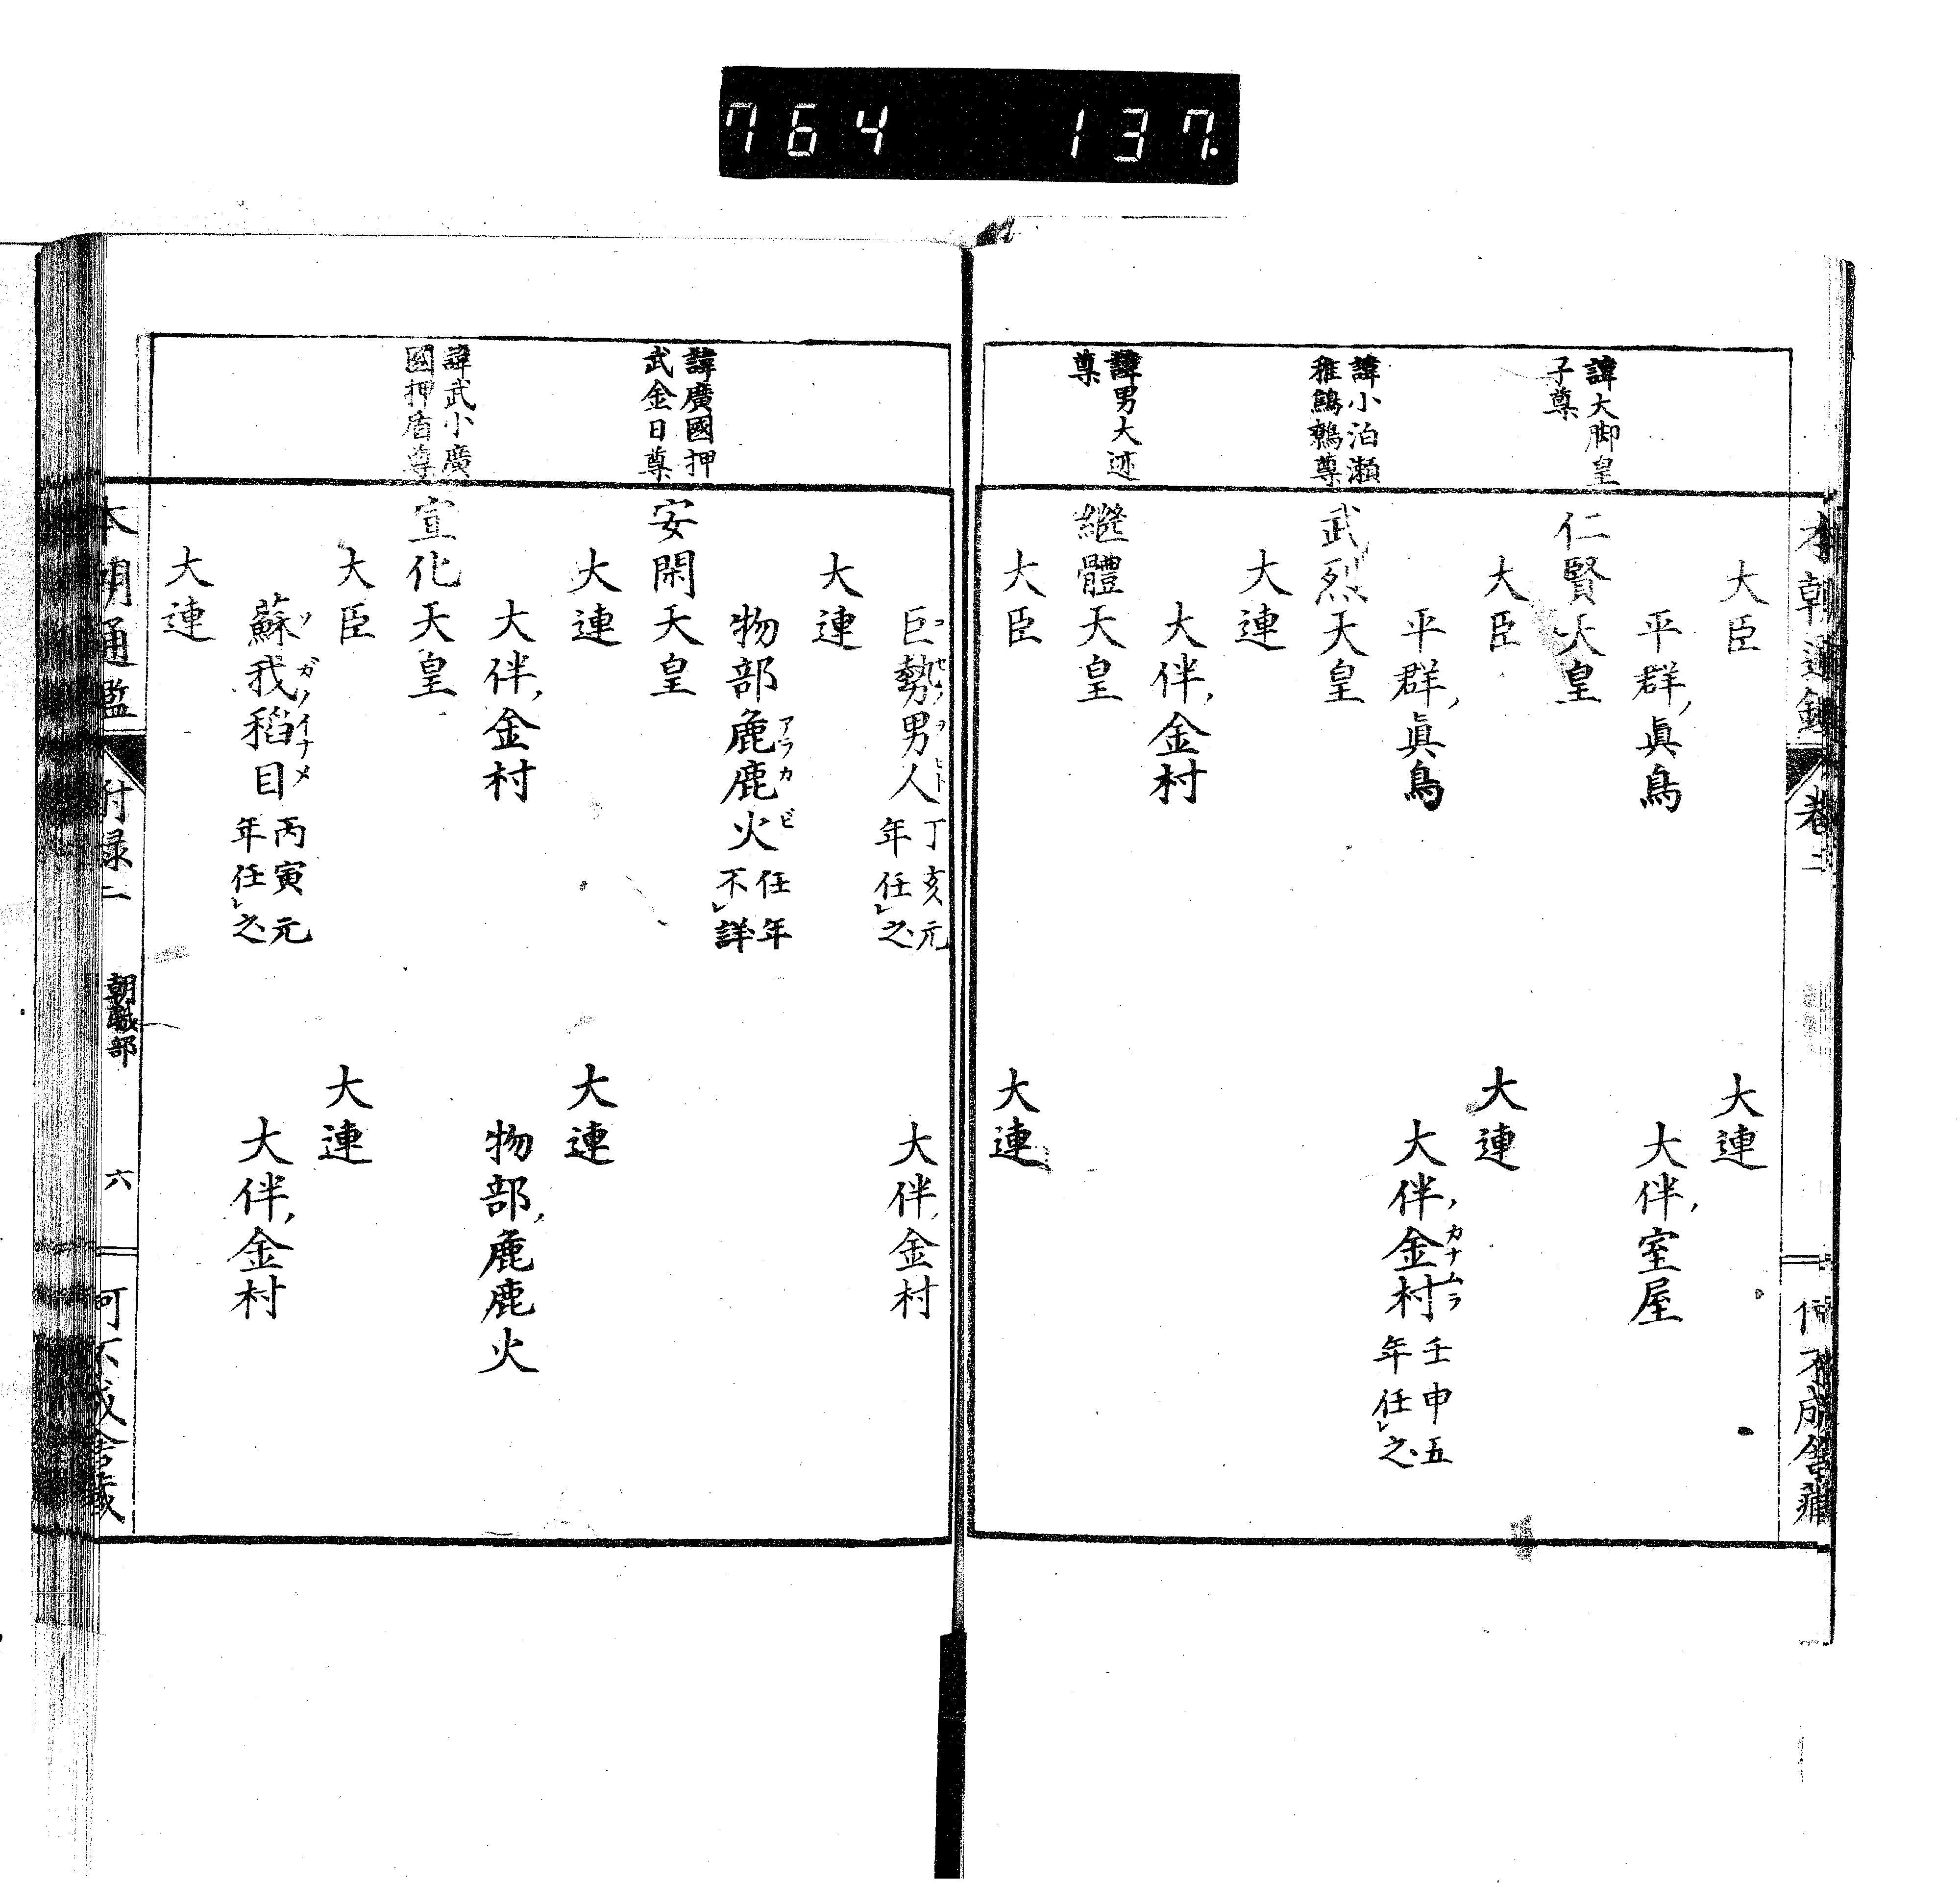 764 137
本朝通鑑 卷二
大臣 大連
平群眞鳥 大伴室屋
諱大脚皇
子尊
仁賢天皇
大臣 大連
平群眞鳥 大伴金村 カナムラ
壬申五
年任レ之
諱小泊瀬
稚鷦鷯尊
武烈天皇
大連
大伴金村
諱男大迹
尊
繼體天皇
大臣 大連
巨勢男人 コセノヲヒト
丁亥元
年任レ之
大伴金村
大連
物部麁鹿火 アラカビ
任年
不レ詳
諱廣國押
武金日尊
安閑天皇
大連 大連
大伴金村 物部麁鹿火
諱武小廣
國押盾尊
宣化天皇
大臣 大連
蘇我稻目 ソガノイナメ
丙寅元
年任レ之
大伴金村
大連
本朝通鑑 附録二 朝職部 六